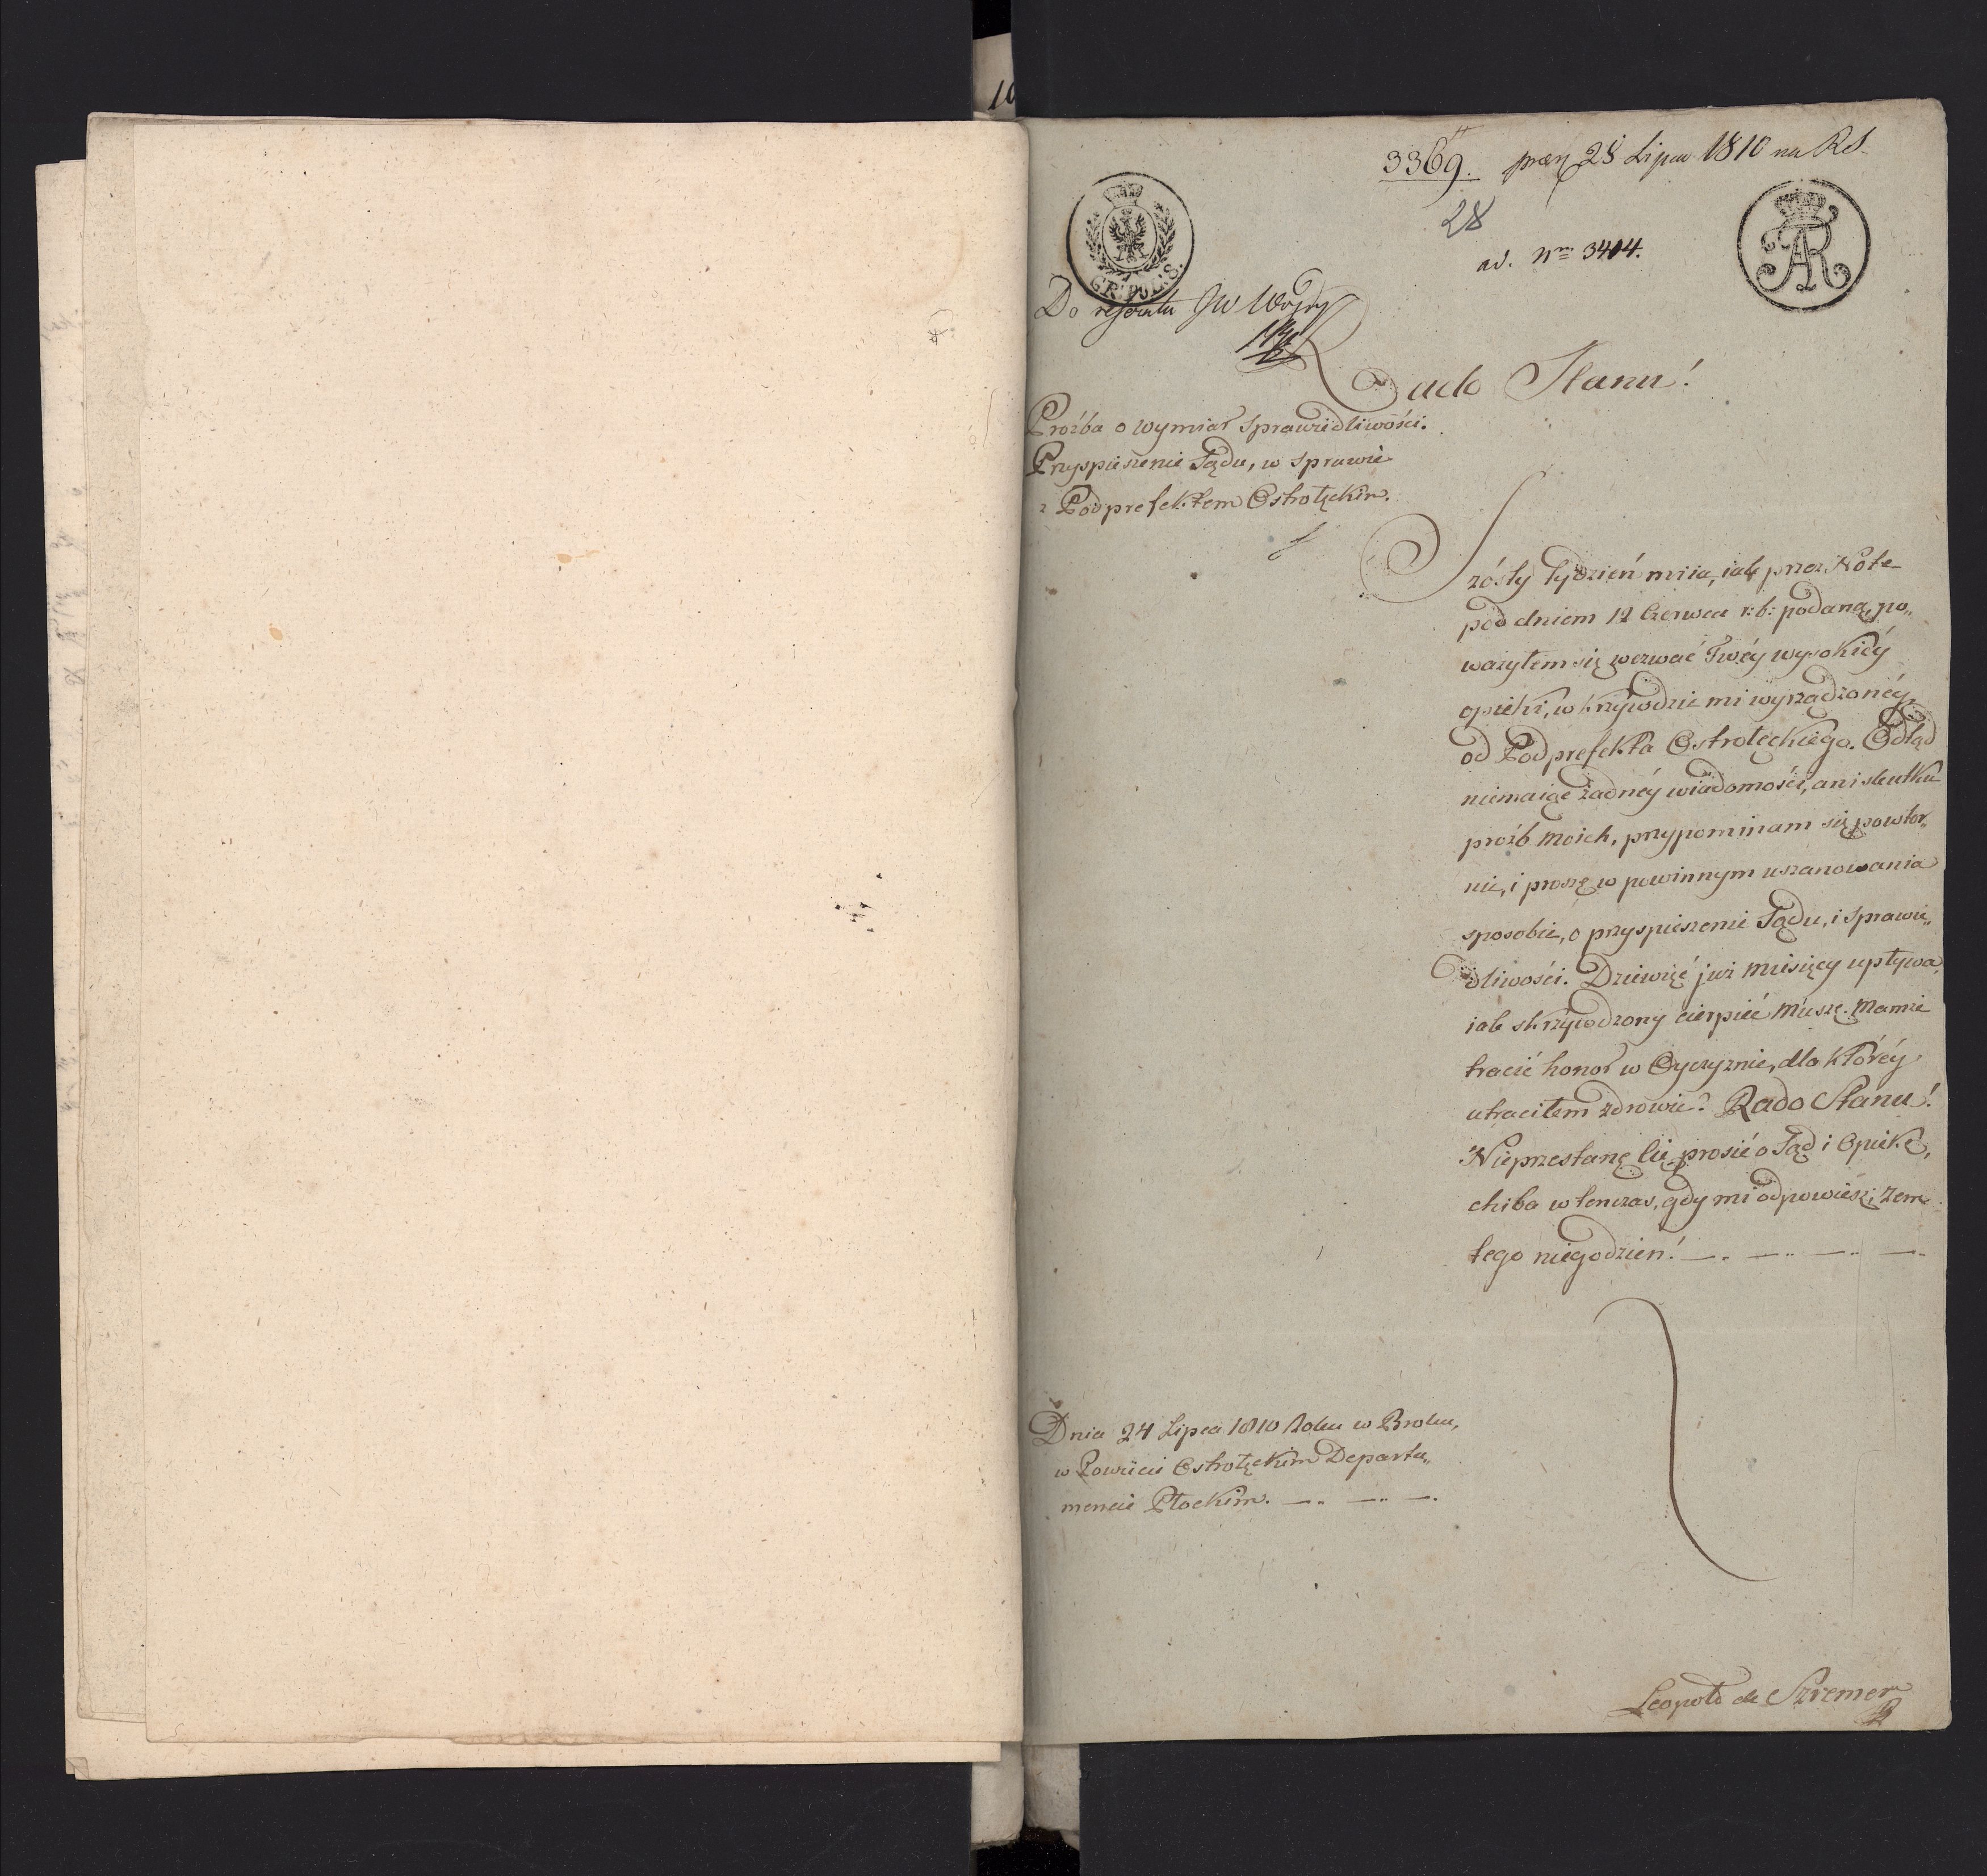 3369. prez 28 Lipca 1810 na RS.
28
ad. Nm 3414.
GR. POL: 8.
AR
Do referatu JW Woydy
Rado Stanu!
Proźba o wymiar Sprawiedliwości.
Przyspieszenie Sądu, w sprawie
z Podprefektem Ostrołęckim.
Szósty tydzień miia, iak przez Notę
pod dniem 12 Czerwca r: b: podaną, po„
ważyłem się wezwać Twéy wysokiéy
opieki, w krzywdzie mi wyrządzonéy
od Podprefekta Ostrołęckiego. Odtąd
niemaiąc żadnéy wiadomości, ani skutku
próźb moich, przypominam się powtor„
nie, i proszę w powinnym uszanowania
sposobie, o przyspieszenie Sądu, i Sprawie„
dliwości. Dziewięć już miesięcy upływa,
iak skrzywdzony cierpieć muszę. Mamże
tracić honor w Oyczyznie, dla któréy
utraciłem zdrowie? Rado Stanu!
Nieprzestanę Cię prosić o Sąd i Opiekę,
chiba w tenczas, gdy mi odpowiesz; żem
tego niegodzien! —. —.. —.. —..
Dnia 24 Lipca 1810 Roku w Broku,
w Powiecie Ostrołęckim Departa„
mencie Płockim. —.. —.. —.
Leopold de Szremer